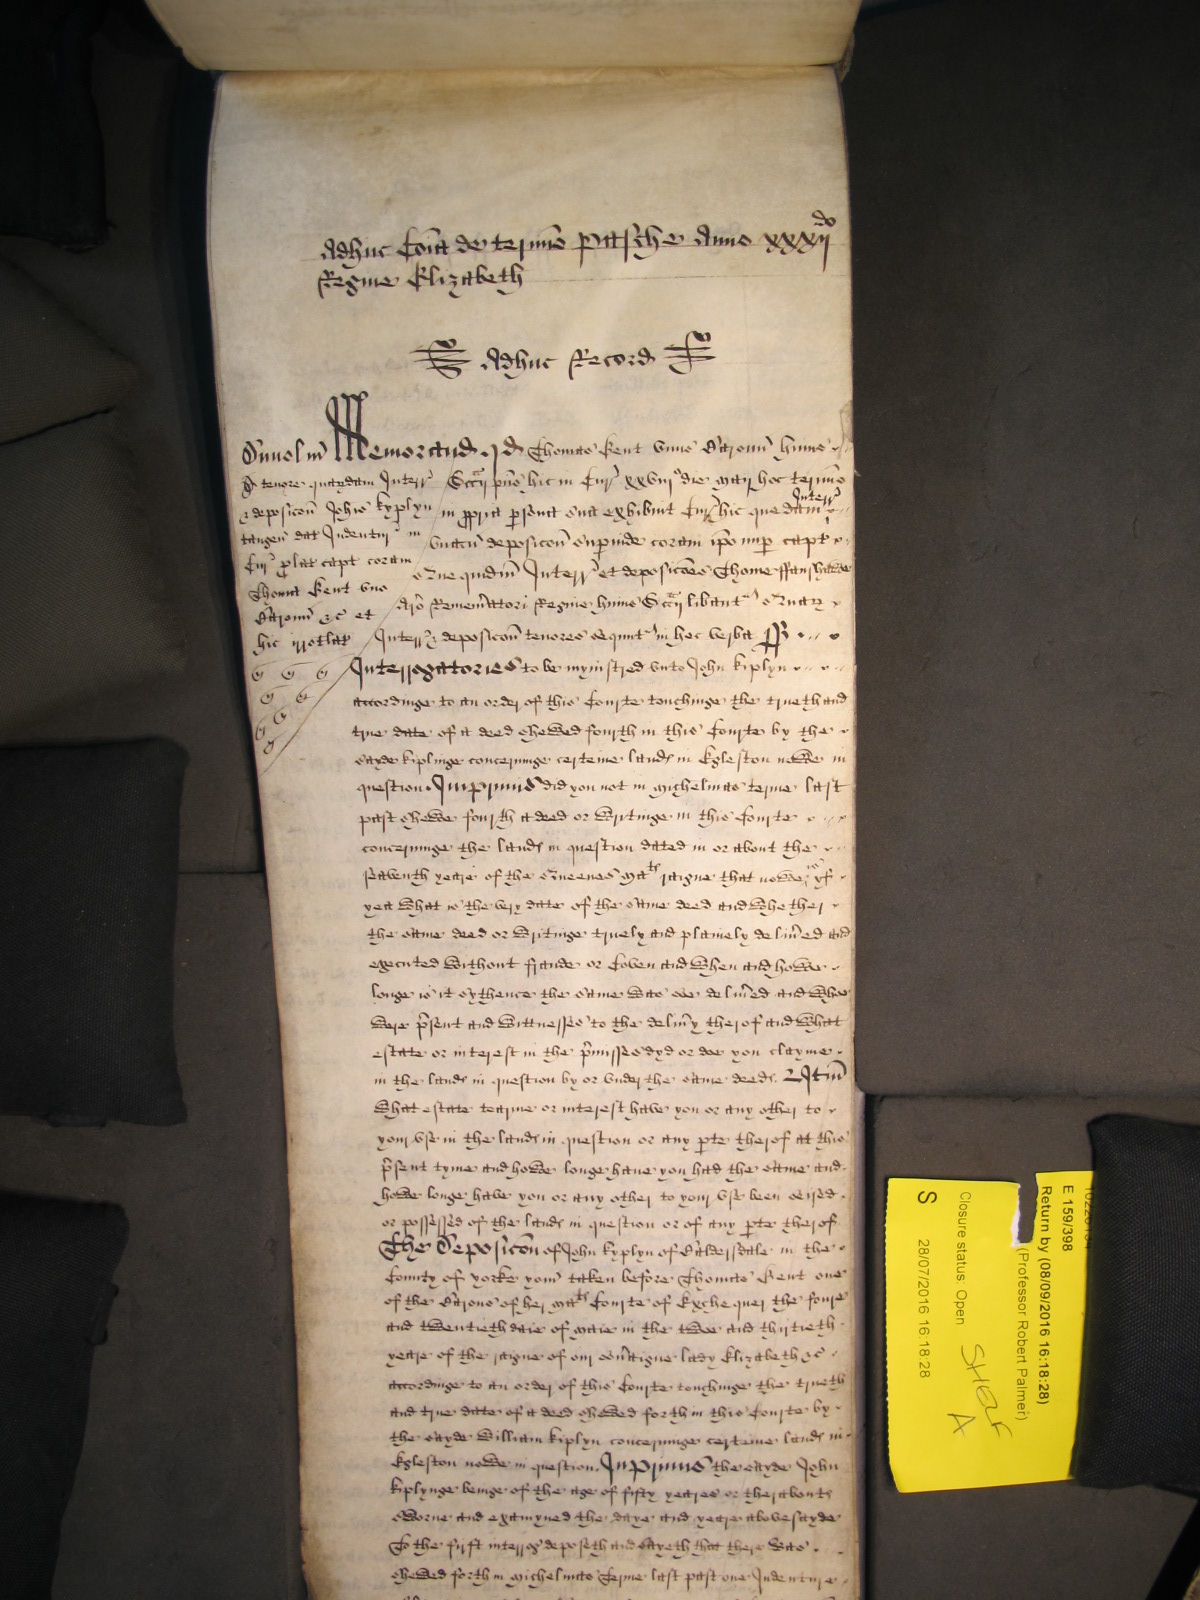 Adhuc Com̃a de termĩo Pasche Anno xxxij do
Regine Elizabeth
Adhuc Record
Memorand qd Thomas Kent unus Baronũ huius
Dunolm̃
Sccij p̃ns hic in Cur̃ xxviijº die Maij hoc termĩo
tenore quarũdam Interr
in propria persona sua exhibuit Cur̃ hic quedam Interr
& deposicoñ Joħis Kyplyn
unacũ deposicoñ superinde coram ip̃o nup capt
tangeñ dat Indentur̃ in
Cur̃ prolat capt coram
Que quidm̃ Interr̃ et deposicões Thome Fanshawe
Thoma Kent uno
Ar̃o Remem̃atori Regine huius Sccij libant
Baronũ &c et
hic irrotlat
Interr̃ & deposicoñ tenores sequnt̃ in hec verba ss
Interrogatories to be mynistred unto John Kiplyn
accordinge to an order of this Courte touchinge the trueth and
true date of a deed shewed fourth in this Courte by the
sayde Kiplinge concerninge certeine lands in Egleston nowe in
question. Inprimis did you not in Michelmas terme last
past shewe fourth a deed or writinge in this Courte
concerninge the lands in question dated in or about the
seaventh yeare of the Queenes Matꝭ raigne that nowe is yf
yea what is the very date of the same deed and whether
the same deed or writinge truely and plainely delived and
executed without fraude or Coven and when and howe
longe is it sythence the same was soe delived and whoe
were p̃sent and wittnesses to the delivy therof and what
estate or interest in the p̃misses dyd or doe you clayme
in the lands in question by or under the same deede. Itm̃
what estate tearme or interest have you or any other to
your use in the lands in question or any pte therof at this
p̃sent tyme and howe longe have you had the same and
howe longe have you or any other to your use been seised
or possessed of the lands in question or of any pte therof
The Deposicõn of John Kyplyn of Baldersdale in the
County of Yorke taken before Thomas Kent one
of the Barons of her Matꝭ Courte of Exchequer the foure
and twentieth daie of Maie in the twoe and thirtieth
yeare of the raigne of our Sov̾aigne lady Elizabeth &c
accordinge to an order of this Courte touchinge the trueth
and true date of a deed shewed forth in this Courte by
the sayde William Kiplyn concerninge certeine lands in
Egleston nowe in question. Inprimis the sayde John
Kiplynge beinge of the age of fifty yeares or thereabouts
sworne and examyned the daye and yeare abovesayde
To the first interrog deposeth and sayeth that there was
shewed forth in Michelmas Terme last past one Indenture
E 159/398
Return by (08/09/2016 16:18:28)
(Professor Robert Palmer)
Closure status: Open
S 28/07/2016 16:18:28
SHELF
A